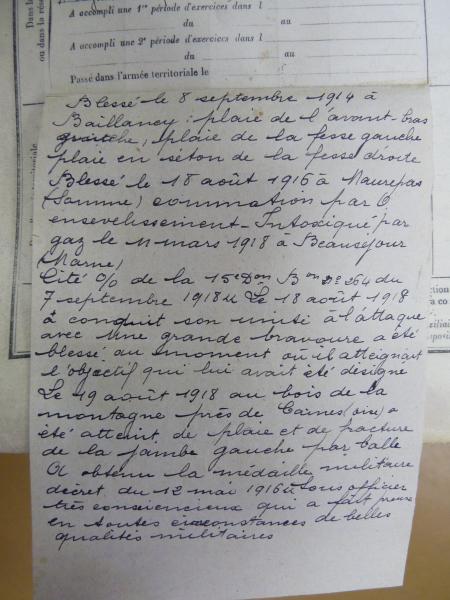 Dans les
ou dans la rése
A accompli une 1re période d'exercices dans l
du au
A accompli une 2e période d'exercices dans l
du au
Passé dans l'armée territoriale le
Blessé le 8 septembre 1914 à
Baillancy : plaie de l'avant-bras
gauche, plaie de la fesse gauche
plaie en séton de la fesse droite
Blessé le 18 août 1916 à Maurepas
(Somme) commotion par O
ensevelissement - Intoxiqué par
gaz le 11 mars 1918 à Beauséjour
(Marne)
Cité O/ de la 15e Don Bon No 264 du
7 septembre 1918 " Le 18 août 1918
a conduit son unité à l'attaque
avec une grande bravoure a été
blessé au moment où il atteignait
l'objectif qui lui avait été désigné
Le 19 août 1918 au bois de la
montagne près de Caines (oise) a
été atteint de plaie et de fracture
de la jambe gauche par balle
A obtenu la médaille militaire
décret du 12 mai 1916 " Sous officier
très consciencieux qui a fait preuve
en toutes circonstances de belles
qualités militaires